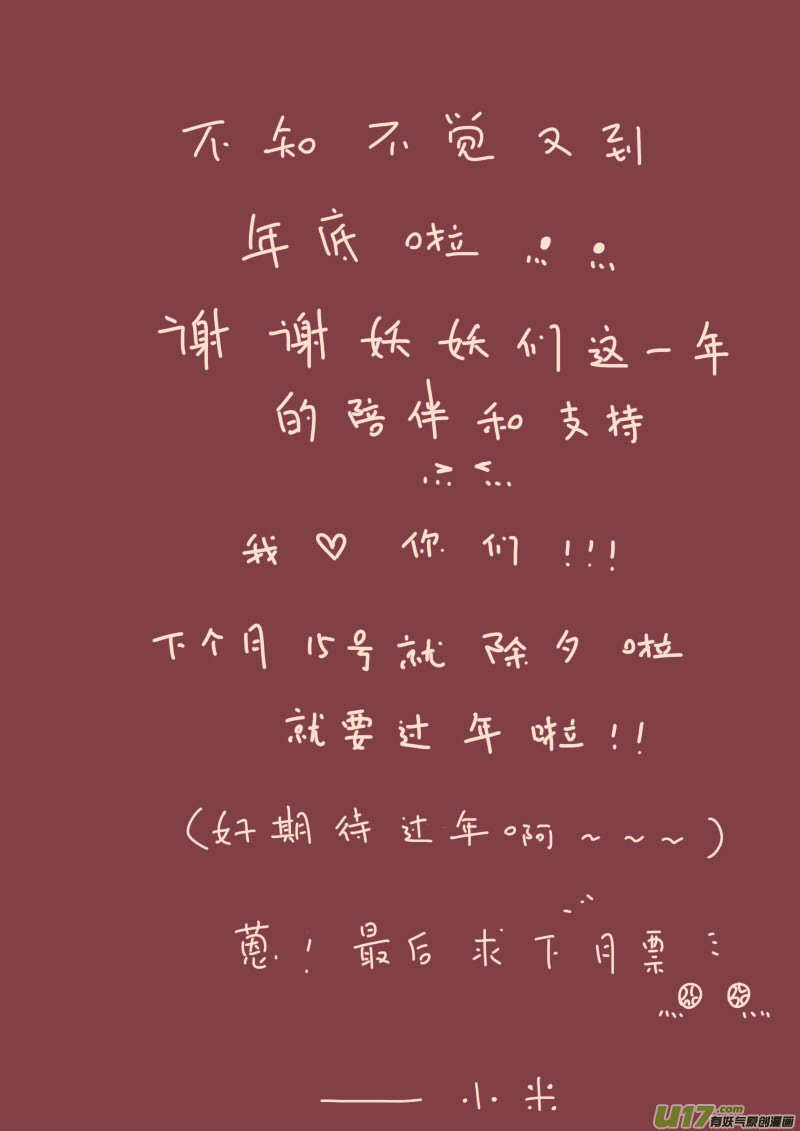 不知不觉又到
年底啦
谢谢妖妖们这一年
的陪伴和支持
我♡你们!!!
下个月15号就除夕啦
就要过年啦!!
(好期待过年啊~~~)
蒽!最后求下月票
——小米
U17.com
有妖气原创漫画